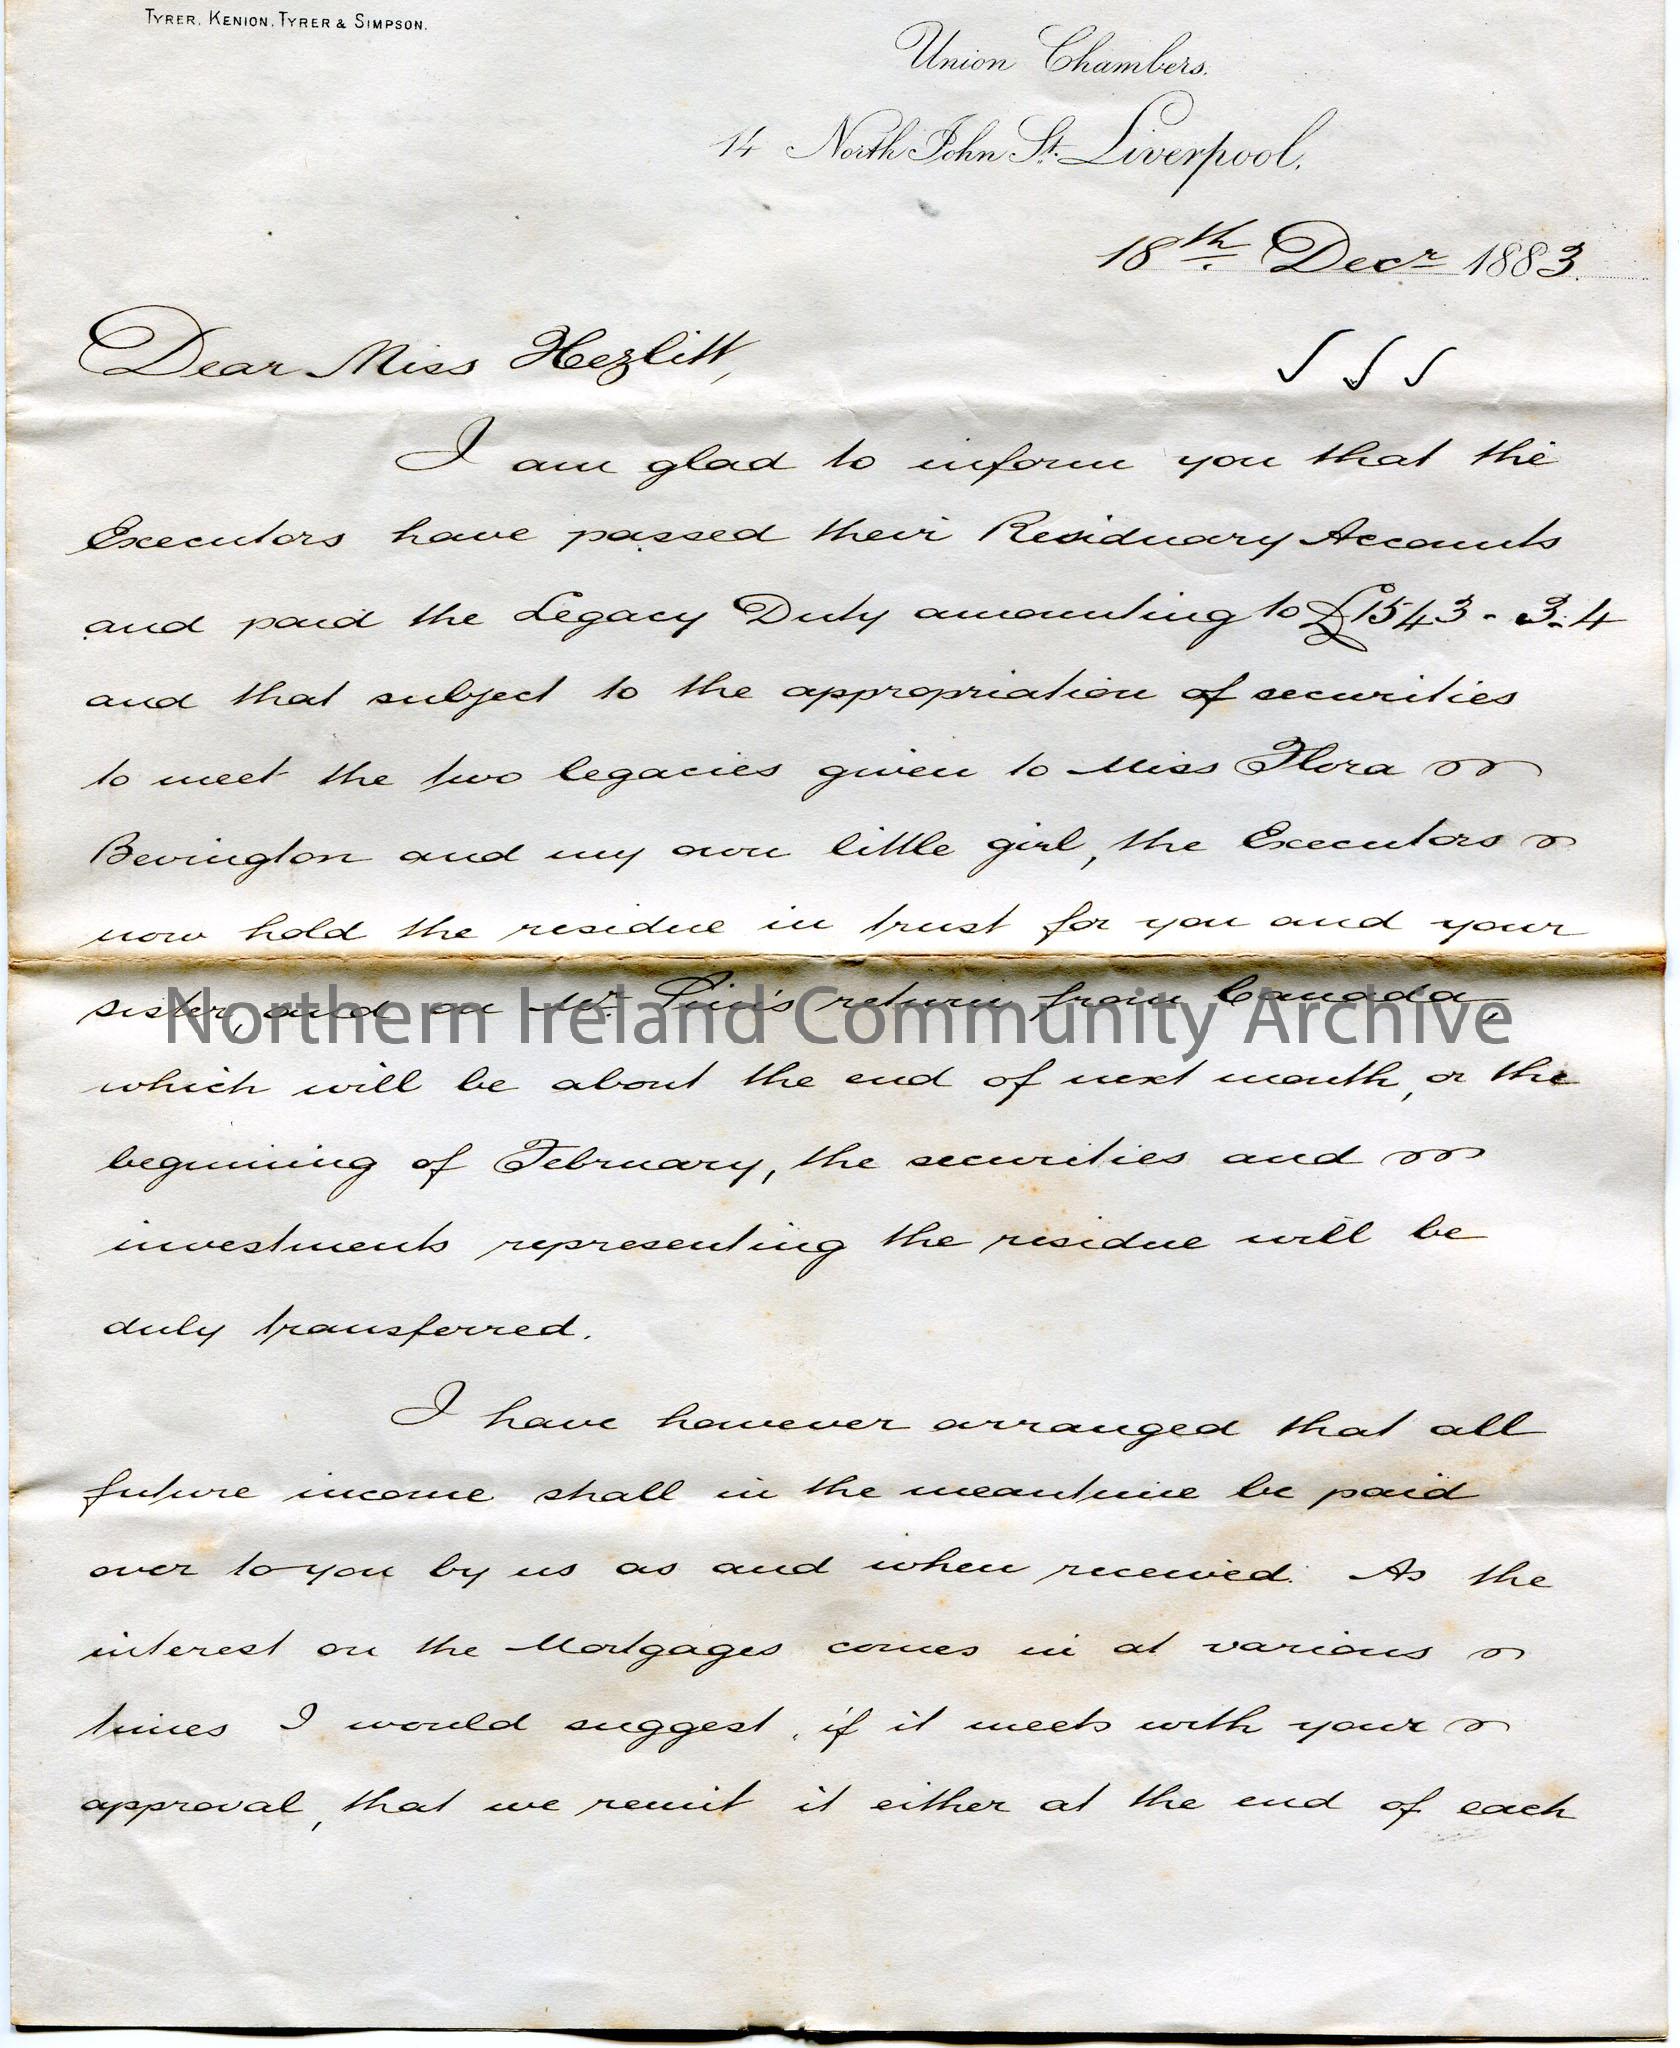 TYRER, KENION, TYRER & SIMPSON.
Union Chambers.
14 North John St. Liverpool.
18th. Decr 1883.
Dear Miss Hezlitt,
I am glad to inform you that the
Executors have passed their Residuary Accounts
and paid the Legacy Duty amounting to £1543-3-4
and that subject to the appropriation of securities
to meet the two legacies given to Miss Flora
Bevington and my own little girl, the Executors
now hold the residue in trust for you and your
sister, and on Mr. return from Canada,
Northern Ireland Community Archive
which will be about the end of next month, or the
beginning of February, the securities and
investments representing the residue will be
duly transferred.
I have however arranged that all
future income shall in the meantime be paid
over to you by us as and when received. As the
interest on the Mortgages comes in at various
times I would suggest, if it meets with your
approval, that we remit it either at the end of each